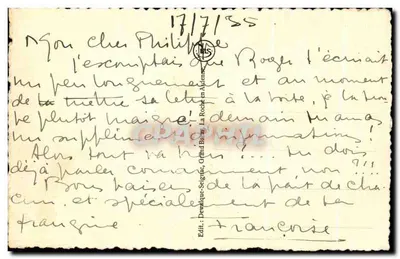 17/7/55
Mon cher Philippe
j'escomptais que Roger t'écrirait
un peu longuement et au moment
de mettre sa lettre à la boite, je la trouve
plutôt maigre! demain tu auras
un supplément d'informations.
Alors tout va bien?... tu dois
déjà parler couramment, non?!!
Bons baisers de la part de cha-
cun et spécialement de ta
frangine Françoise
Edit.: Desaix, Grand Bazar, La Roche en Ardenne